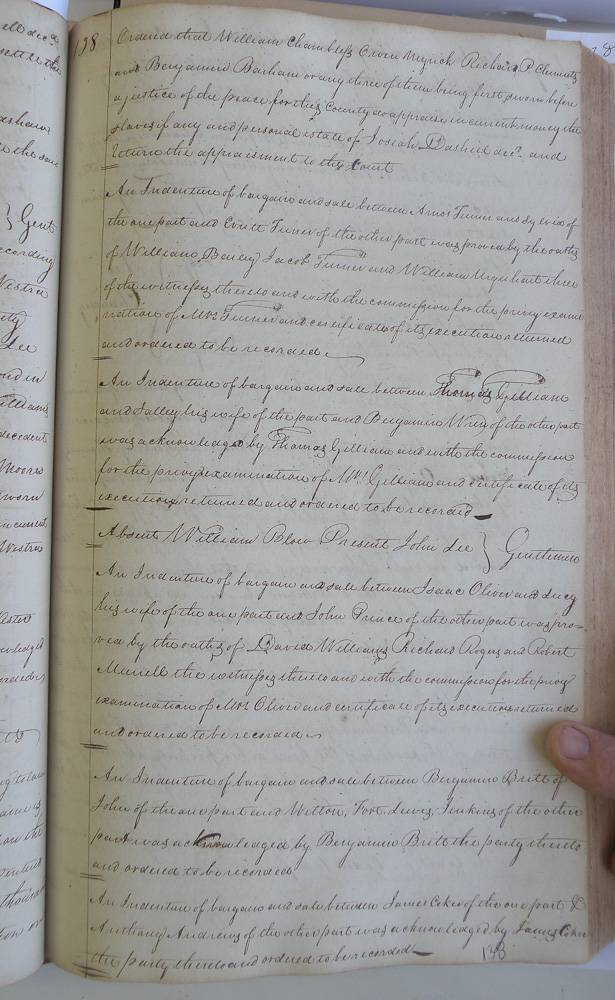 128
Ordered that William Chambless Owen Myrick Richard P Clements
and Benjamin Barham or any three of them being first sworn before
a justice of the peace for this County do appraise in current money the
slaves if any and personal estate of Josiah Dashiel decd. and
return the appraisment to the Court
An Indenture of bargain and sale between Amos Turner and Sylvia of
the one part and Turner of the other part was proved by the oaths
of William Bailey Jacob Turner and William Urquhart three
of the witnesses thereto and with the commission for the privy exami
nation of Mrs. Turner and certificate of its execution returned
and ordered to be recorded
An Indenture of bargain and sale between Thomas Gilliam
and Salley his wife of the part and Benjamin of the other part
was acknowledged by Thomas Gilliam and with the commission
for the privy examination of Mrs. Gilliam and certificate of its
execution returned and ordered to be recorded
Absent William Blow Present John Lee } Gentlemen
An Indenture of bargain and sale between Isaac Oliver and Lucy
his wife of the one part and John Prince of the other part was pro-
ved by the oaths of David Williams Richard Rogers and Robert
Murrell the witnesses thereto and with the commission for the privy
examination of Mrs. Oliver and certificate of its execution returned
and ordered to be recorded
An Indenture of bargain and sale between Benjamin Britt of
John of the one part and Jenkins of the other
part was acknowledged by Benjamin Britt the party thereto
and ordered to be recorded
An Indenture of bargain and sale between James Coker of the one part &
Anthony Andrews of the other part was acknowledged by James Coker
the party thereto and ordered to be recorded
138